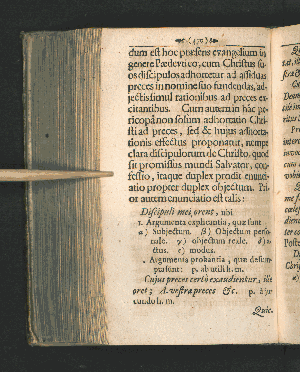 (470)
dum est hoc præsens evangelium in
genere Pædevtico, cum Christus su-
os discipulos adhortetur ad assiduas
preces in nomine suo fundendas, ad-
jectis simul rationibus ad preces ex-
citantibus. Cum autem in hâc pe-
ricopâ non solum adhortatio Chri-
sti ad preces, sed & hujus adhorta-
tionis effectus proponatur, nempe
clara discipulorum de Christo, quod
sit promissus mundi Salvator, con-
fessio, itaque duplex prodit enunc-
atio propter duplex objectum. Pri-
or autem enunciatio est talis:
Discipuli mei orent, ubi
1. Argumenta explicantia, quæ sunt
α) Subjectum. β) Objectum perso-
nale. γ) objectum reale. δ)
ctus. ε) modus.
Argumenta probantia, quæ desum-
ptasunt: p. ab util. h. m.
Cujus preces certò exaudientur, ille
oret; A. vestræ preces &c. p.
cundo h. m.
Quic.